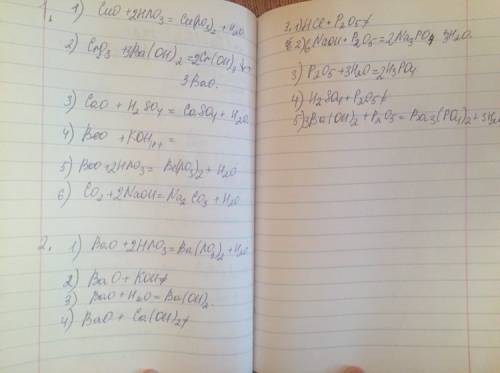 1. 1) CuO + 2HNO₃ = Cu(NO₃)₂ + H₂O
2) + 3Ba(OH)₂ = 2Cr(OH)₃↓ +
3BaO.
3) CaO + H₂SO₄ = CaSO₄ + H₂O
4) BeO + KOH =
5) BeO + 2HNO₃ = Be(NO₃)₂ + H₂O
6) CO₂ + 2NaOH = Na₂CO₃ + H₂O
2. 1) BaO + 2HNO₃ = Ba(NO₃)₂ + H₂O
2) BaO + KOH ≠
3) BaO + H₂O = Ba(OH)₂.
4) BaO + Ca(OH)₂ ≠
3. 1) HCl + P₂O₅ ≠
2) 6NaOH + P₂O₅ = 2Na₃PO₄ 3H₂O.
3) P₂O₅ + 3H₂O = 2H₃PO₄
4) H₂SO₄ + P₂O₅ ≠
5) 3Ba(OH)₂ + P₂O₅ = Ba₃(PO₄)₂ + 3H₂